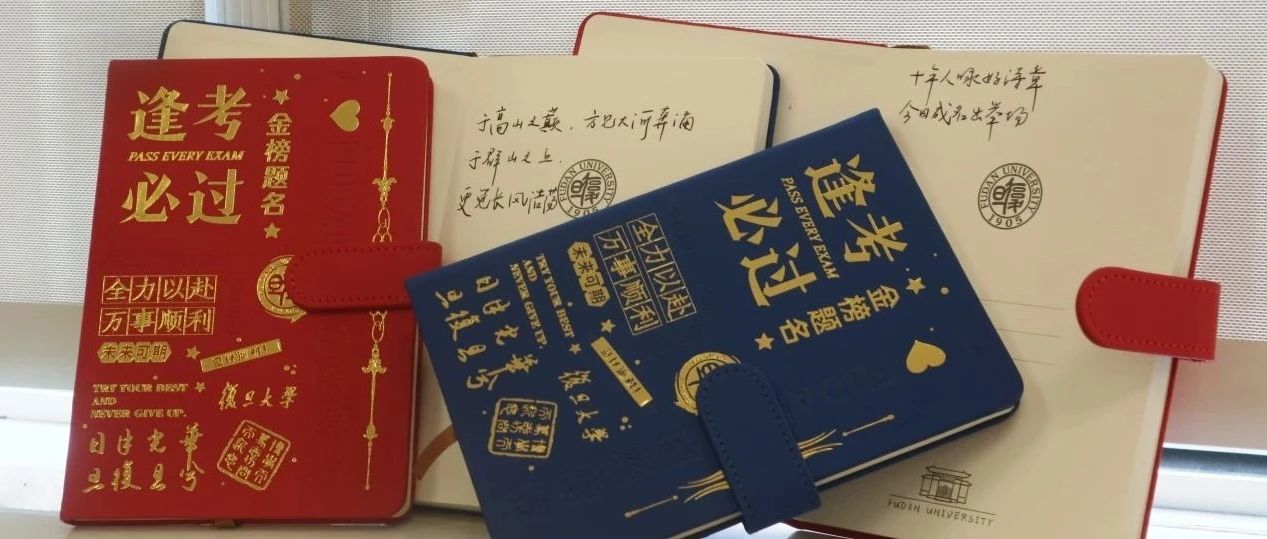 逢考
PASS EVERY EXAM
必过
金榜题名
全力以赴
万事顺利
未来可期
TRY YOUR BEST
AND
NEVER GIVE UP.
復旦大學
日月光華
旦復旦兮
于高山之巅，方见大河奔涌
于群山之上，
更觉长风浩荡
FUDAN UNIVERSITY
1905
逢考
PASS EVERY EXAM
必过
金榜题名
全力以赴
万事顺利
未来可期
TRY YOUR BEST
AND
NEVER GIVE UP.
復旦大學
日月光華
旦復旦兮
十年人咏好诗章
今日成名出举场
FUDAN UNIVERSITY
1905
FUDAN UNIVERSITY